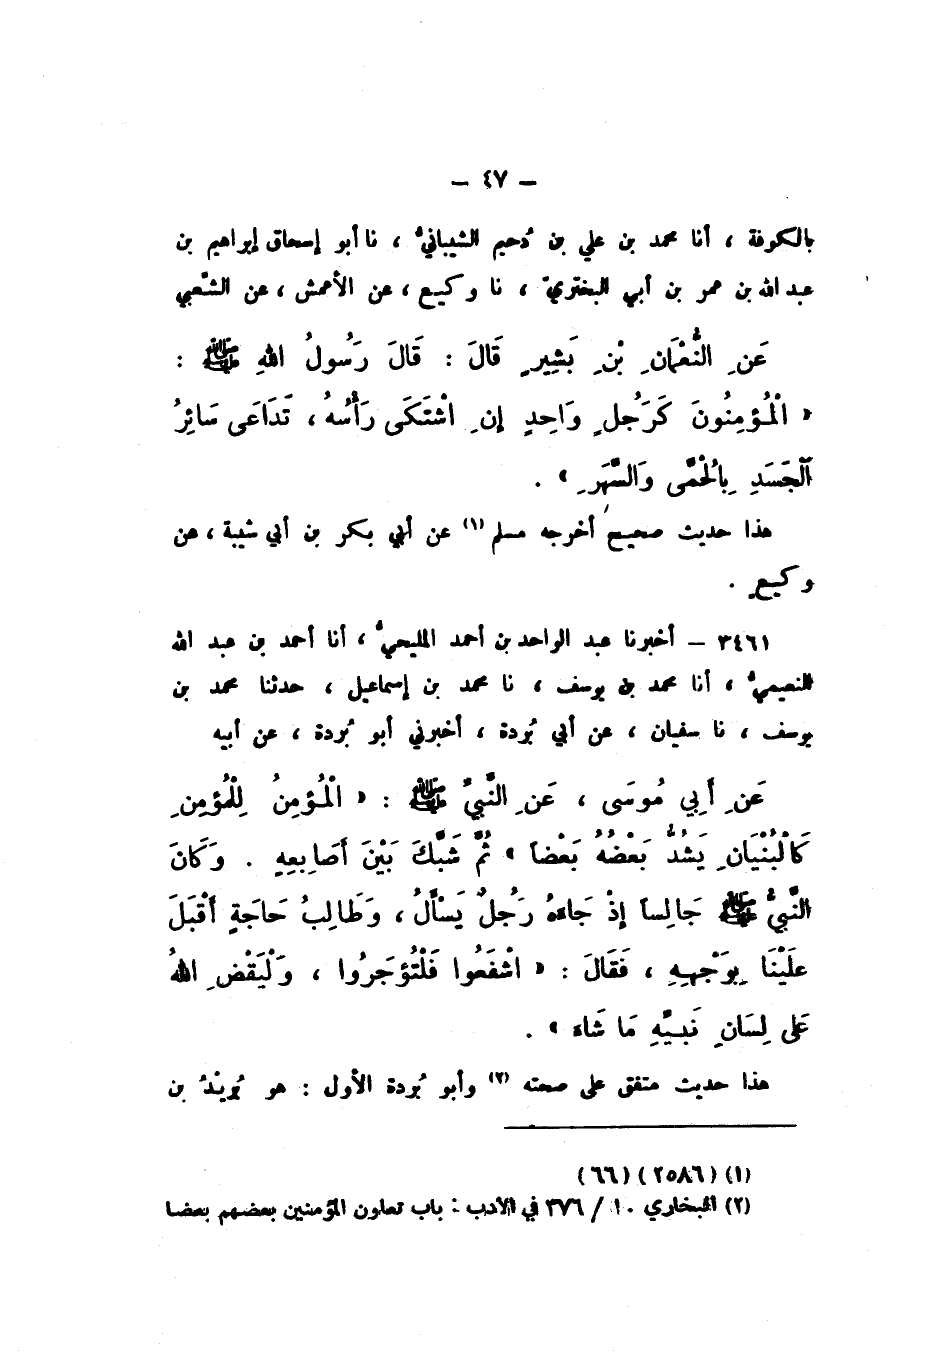 – ٤٧ –
بالكوفة ، أنا محمد بن علي بن دُحيم الشيبانيُّ ، نا أبو إسحاق إبراهيم بن
عبد الله بن عمر بن أبي البختريّ ، نا وكيع ، عن الأعمش ، عن الشَّعبي
عَنِ النُّعْمَانِ بْنِ بَشِيرٍ قَالَ : قَالَ رَسُولُ اللهِ ﷺ :
« الْمُؤمِنُونَ كَرَجُلٍ وَاحِدٍ إنِ اشْتَكَى رَأْسُهُ ، تَدَاعَى سَائِرُ
الْجَسَدِ بِالْحُمَّى وَالسَّهَرِ » .
هذا حديث صحيح أخرجه مسلم (١) عن أبي بكر بن أبي شيبة ، عن
وكيعٍ .
٣٤٦١ – أخبرنا عبد الواحد بن أحمد المليحيُّ ، أنا أحمد بن عبد الله
النعيميُّ ، أنا محمد بن يوسف ، نا محمد بن إسماعيل ، حدثنا محمد بن
يوسف ، نا سفيان ، عن أبي بُردة ، أخبرني أبو بُردة ، عن أبيه
عَنِ أَبِي مُوسَى ، عَنِ النَّبِيِّ ﷺ : « الْمُؤمِنُ لِلْمُؤمِنِ
كَالْبُنْيَانِ يَشُدُّ بَعْضُهُ بَعْضاً » ثُمَّ شَبَّكَ بَيْنَ أَصَابِعِهِ . وَكَانَ
النَّبِيُّ ﷺ جَالِساً إذْ جَاءَهُ رَجُلٌ يَسْأَلُ ، وَطَالِبُ حَاجَةٍ أَقْبَلَ
عَلَيْنَا بِوَجْهِهِ ، فَقَالَ : « اشْفَعُوا فَلْتُؤجَرُوا ، وَلْيَقْضِ اللهُ
عَلى لِسَانِ نَبِيِّهِ مَا شَاءَ » .
هذا حديث متفق على صحته (٢) وأبو بُردة الأول : هو بُريْدُ بن
(١) (٢٥٨٦) (٦٦)
(٢) البخاري ١٠ / ٣٧٦ في الأدب : باب تعاون المؤمنين بعضهم بعضا